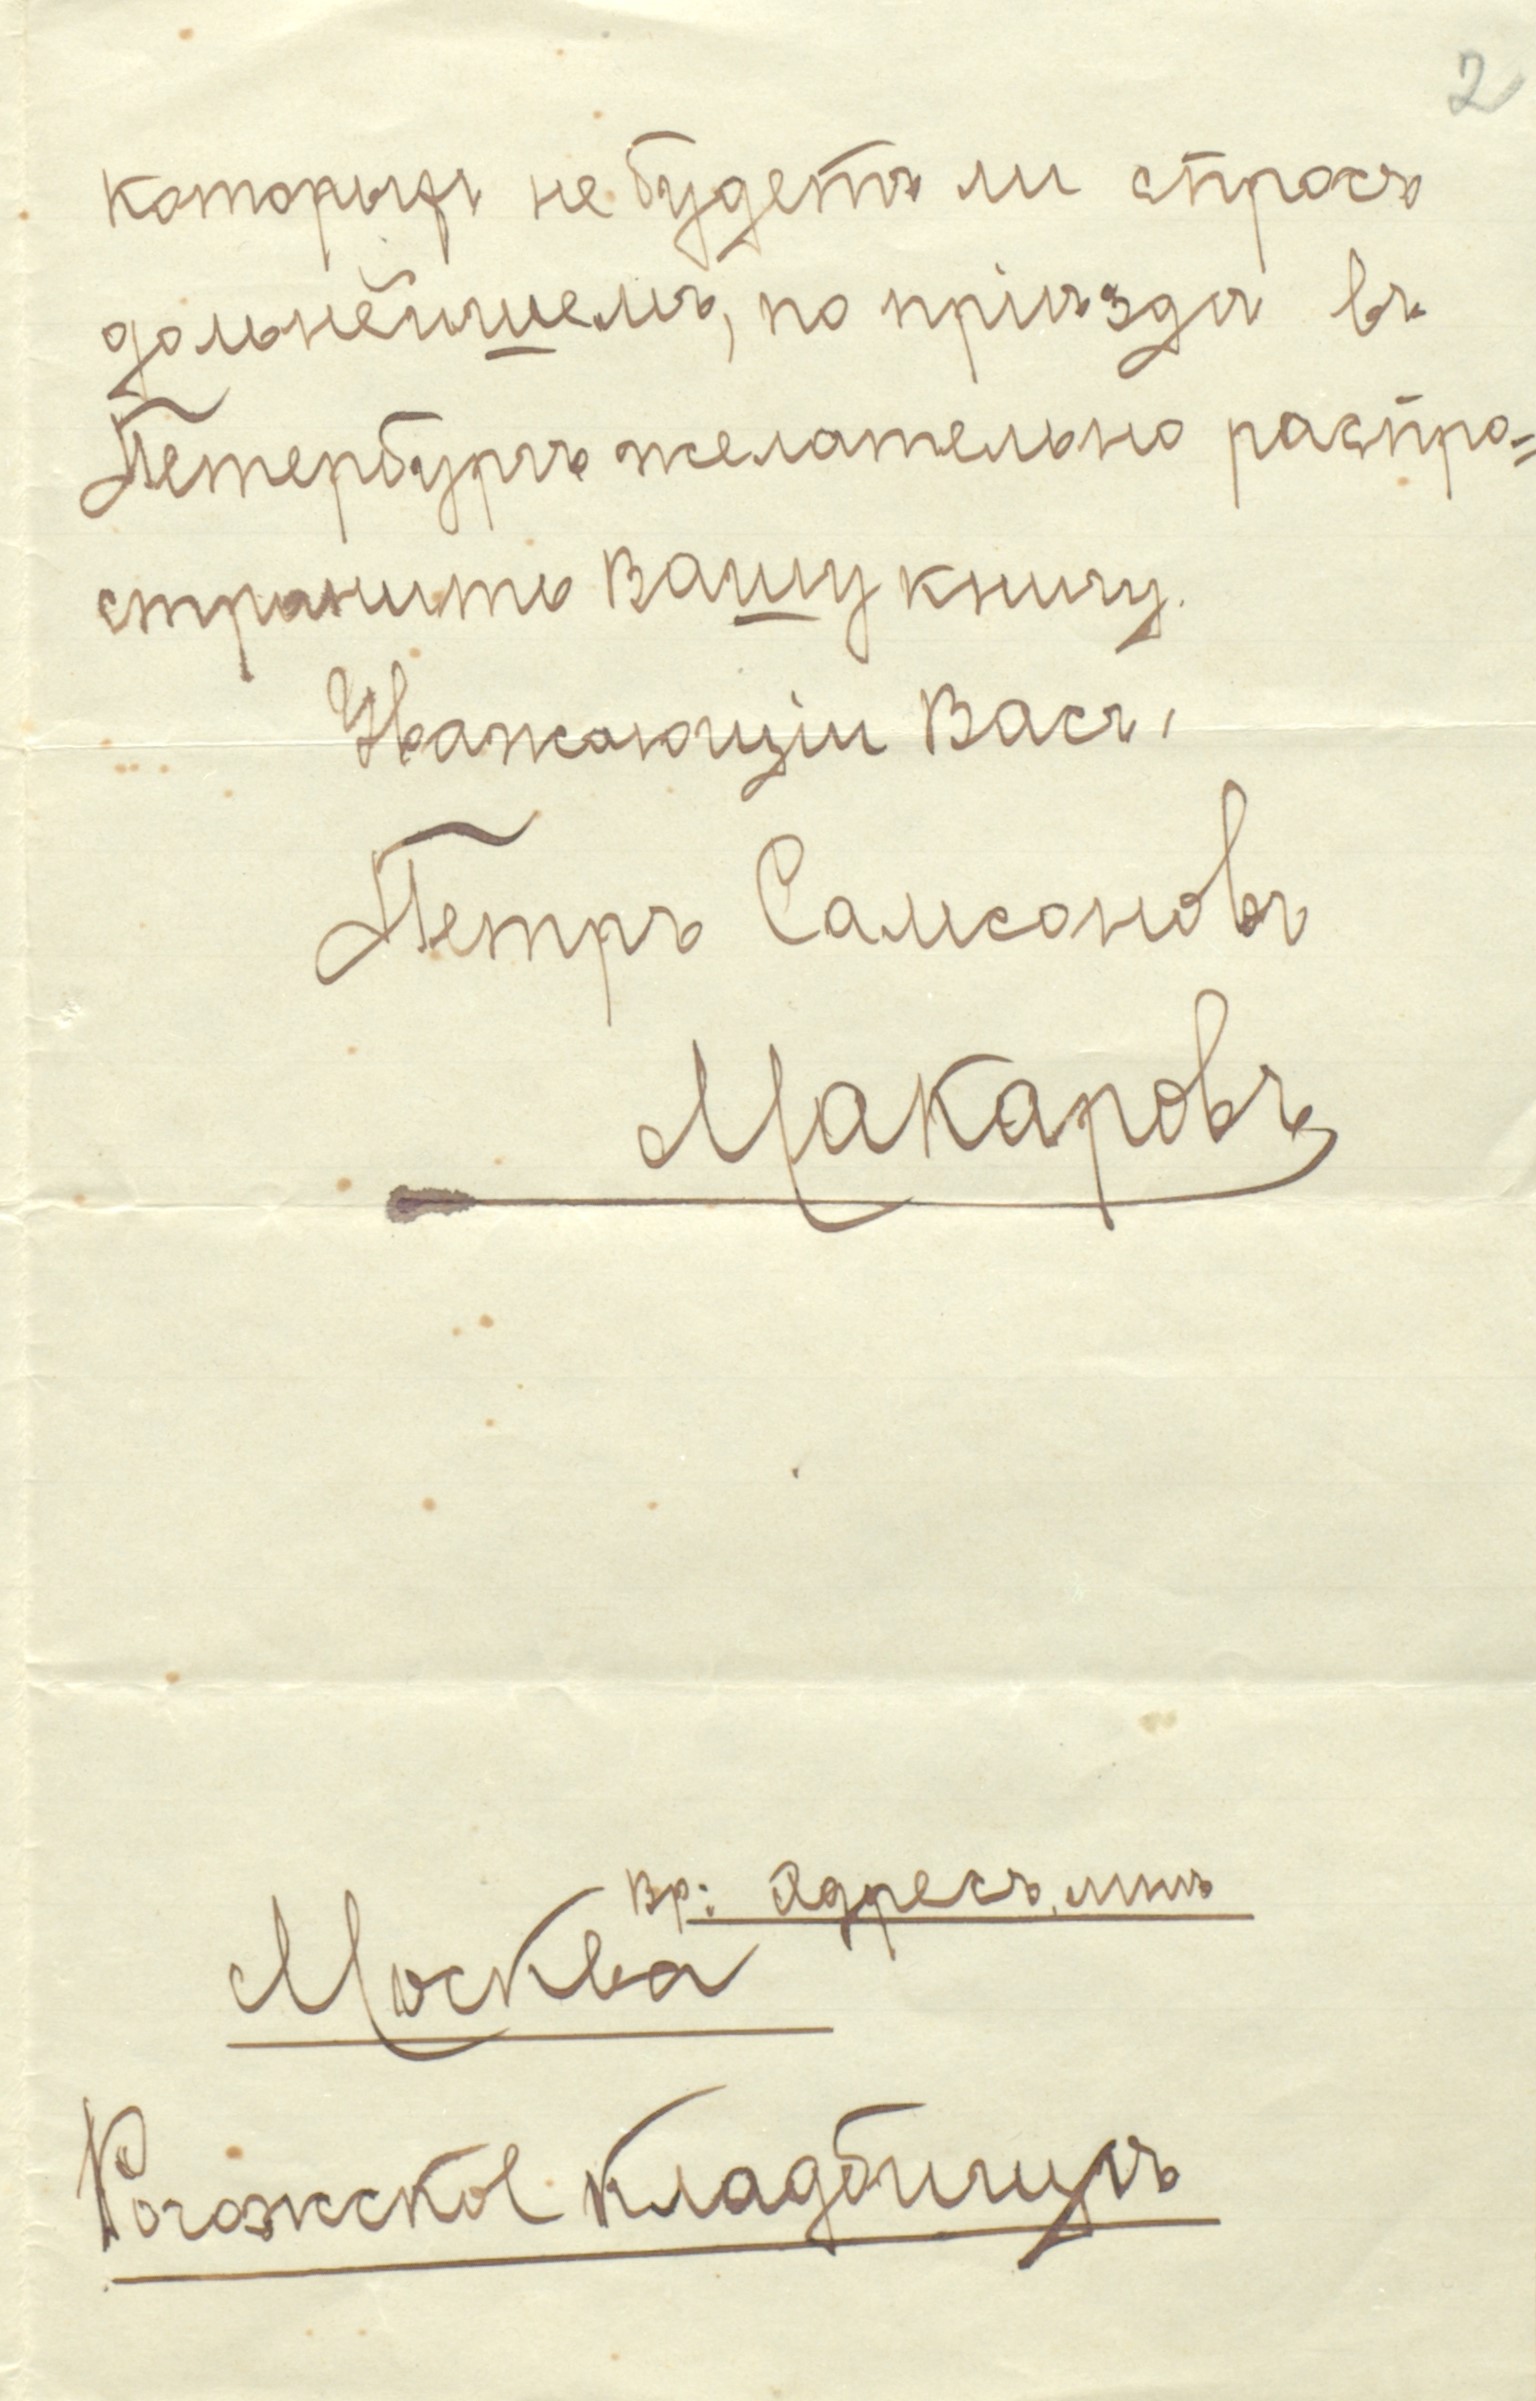 2
которыхъ не будетъ ли спросъ
дольнейшемъ, по пріѣзда въ
Петербургъ желательно распро=
странить Вашу книгу.
Уважающіи Васъ,
Петръ Самсоновъ
Макаровъ
Вр: Адресъ
Москва
Рогожское Кладбище